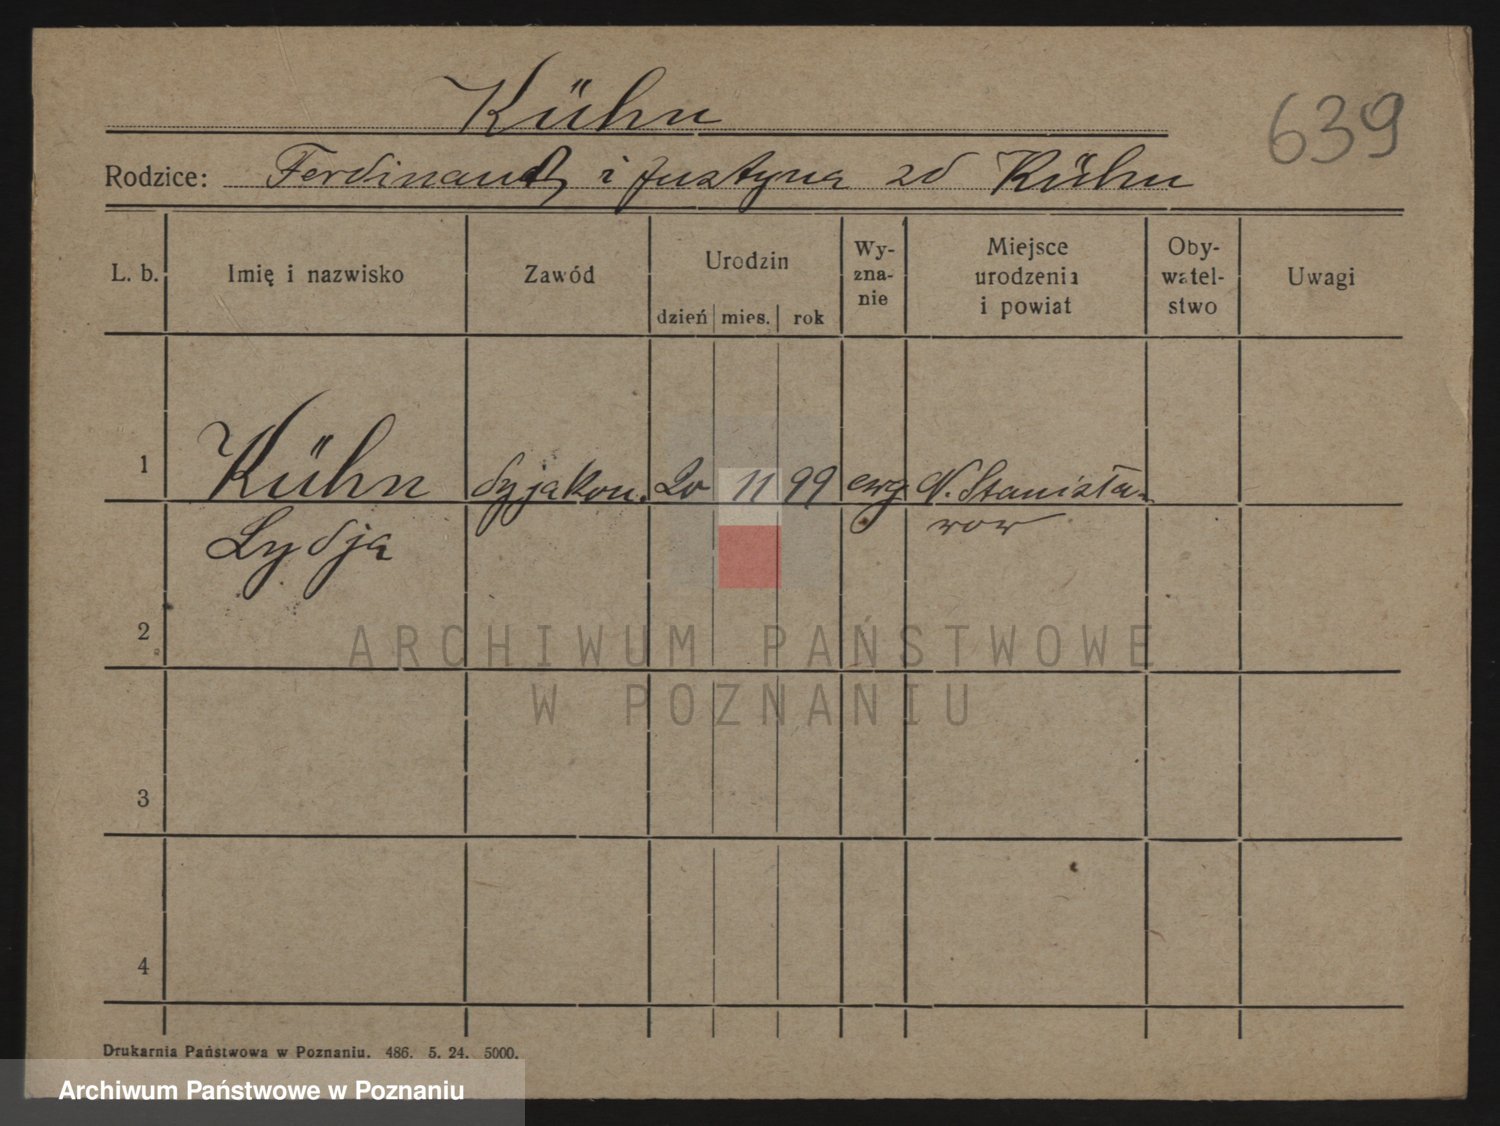 Kühn
639
Rodzice: Ferdinand i Justyna zd Kühn
L. b. Imię i nazwisko Zawód Urodzin dzień mies. rok Wy-
zna-
nie Miejsce
urodzenia
i powiat Oby-
watel-
stwo Uwagi
1 Kühn dyjakon. 20 11 99 ewg N. Stanisła-
Lydja wow
2
3
4
ARCHIWUM PAŃSTWOWE
W POZNANIU
Drukarnia Państwowa w Poznaniu. 486. 5. 24. 5000.
Archiwum Państwowe w Poznaniu